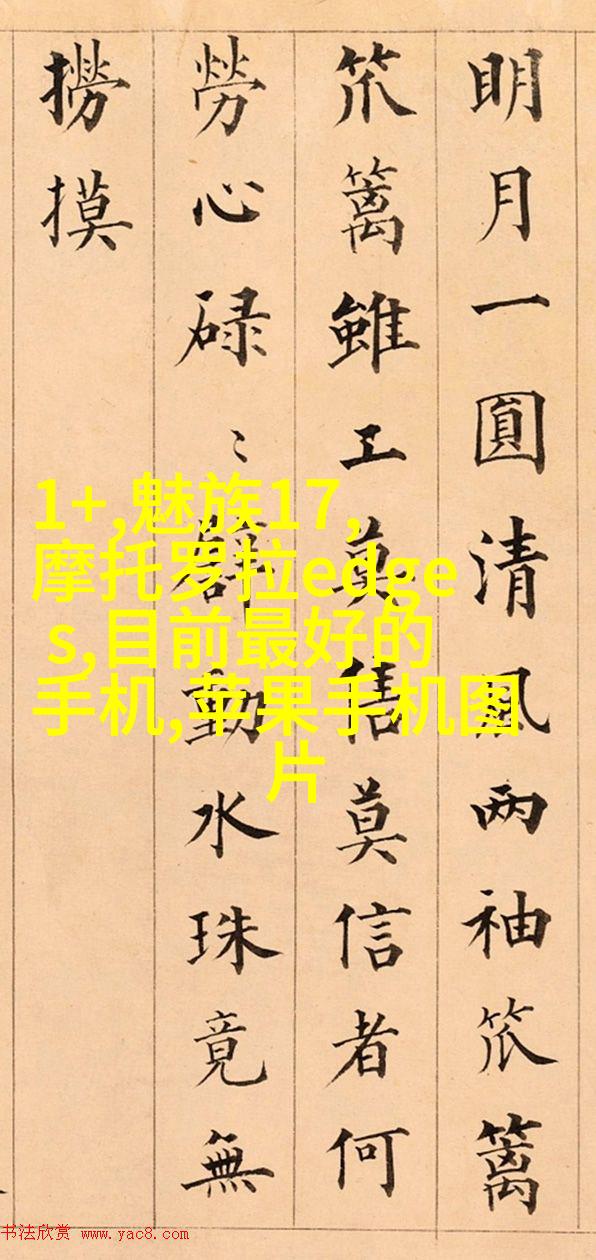 明月一圓清風两袖笊篱
笊篱雖工莫莫信者何
勞心碌〻動水珠竟無
撈摸
1+,魅族17,
摩托罗拉edge
s,目前最好的
手机,苹果手机图
片
书法欣赏 www.yac8.com